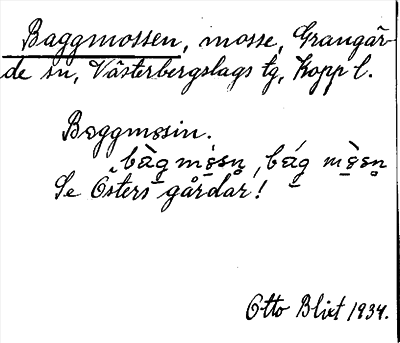 Baggmossen, mosse, Grangär-
de sn, Västerbergslags tg, Kopp l.
Bɷggmɷsin.
bàg mɷ́sn̥, bág mɷ̀sn̥
Se Österś gårdar!
Otto Blixt 1934.